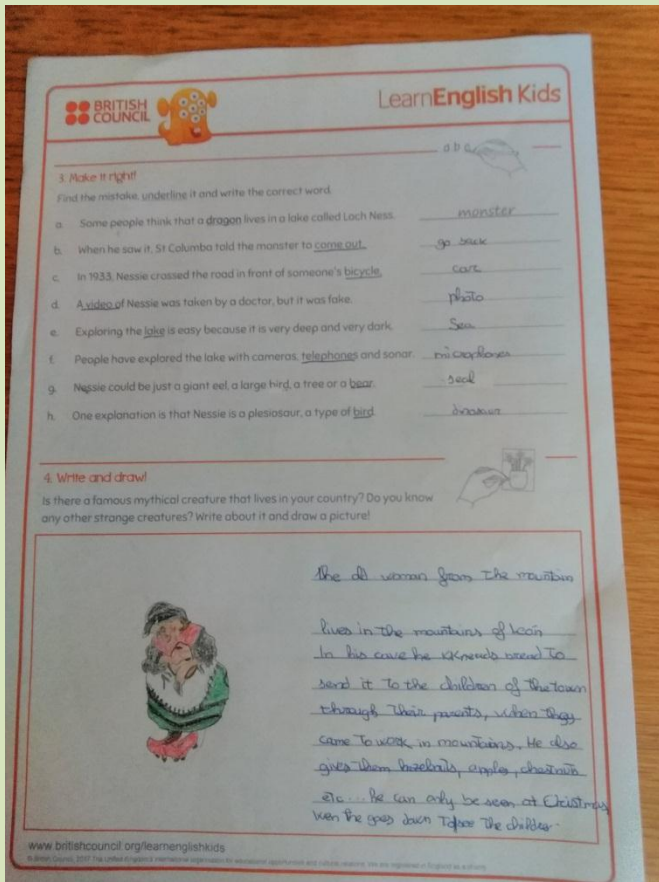 BRITISH
COUNCIL
LearnEnglish Kids
a b c
3. Make it right!
Find the mistake, underline it and write the correct word.
a. Some people think that a dragon lives in a lake called Loch Ness. monster
b. When he saw it, St Columba told the monster to come out. go back
c. In 1933, Nessie crossed the road in front of someone's bicycle. car
d. A video of Nessie was taken by a doctor, but it was fake. photo
e. Exploring the lake is easy because it is very deep and very dark. Sea
f. People have explored the lake with cameras, telephones and sonar. microphones
g. Nessie could be just a giant eel, a large bird, a tree or a bear. seal
h. One explanation is that Nessie is a plesiosaur, a type of bird. dinosaur
4. Write and draw!
Is there a famous mythical creature that lives in your country? Do you know
any other strange creatures? Write about it and draw a picture!
The old woman from the mountain
lives in the mountains of León
In his cave he bread to
send it to the children of the town
through their parents, when they
came to work in mountains. He also
gives them apples, chestnuts
etc... he can only be seen at Christmas
wen the goes down to see the
www.britishcouncil.org/learnenglishkids
© British Council, 2017 The United Kingdom's international organisation for educational opportunities and cultural relations. We are registered in England as a charity.